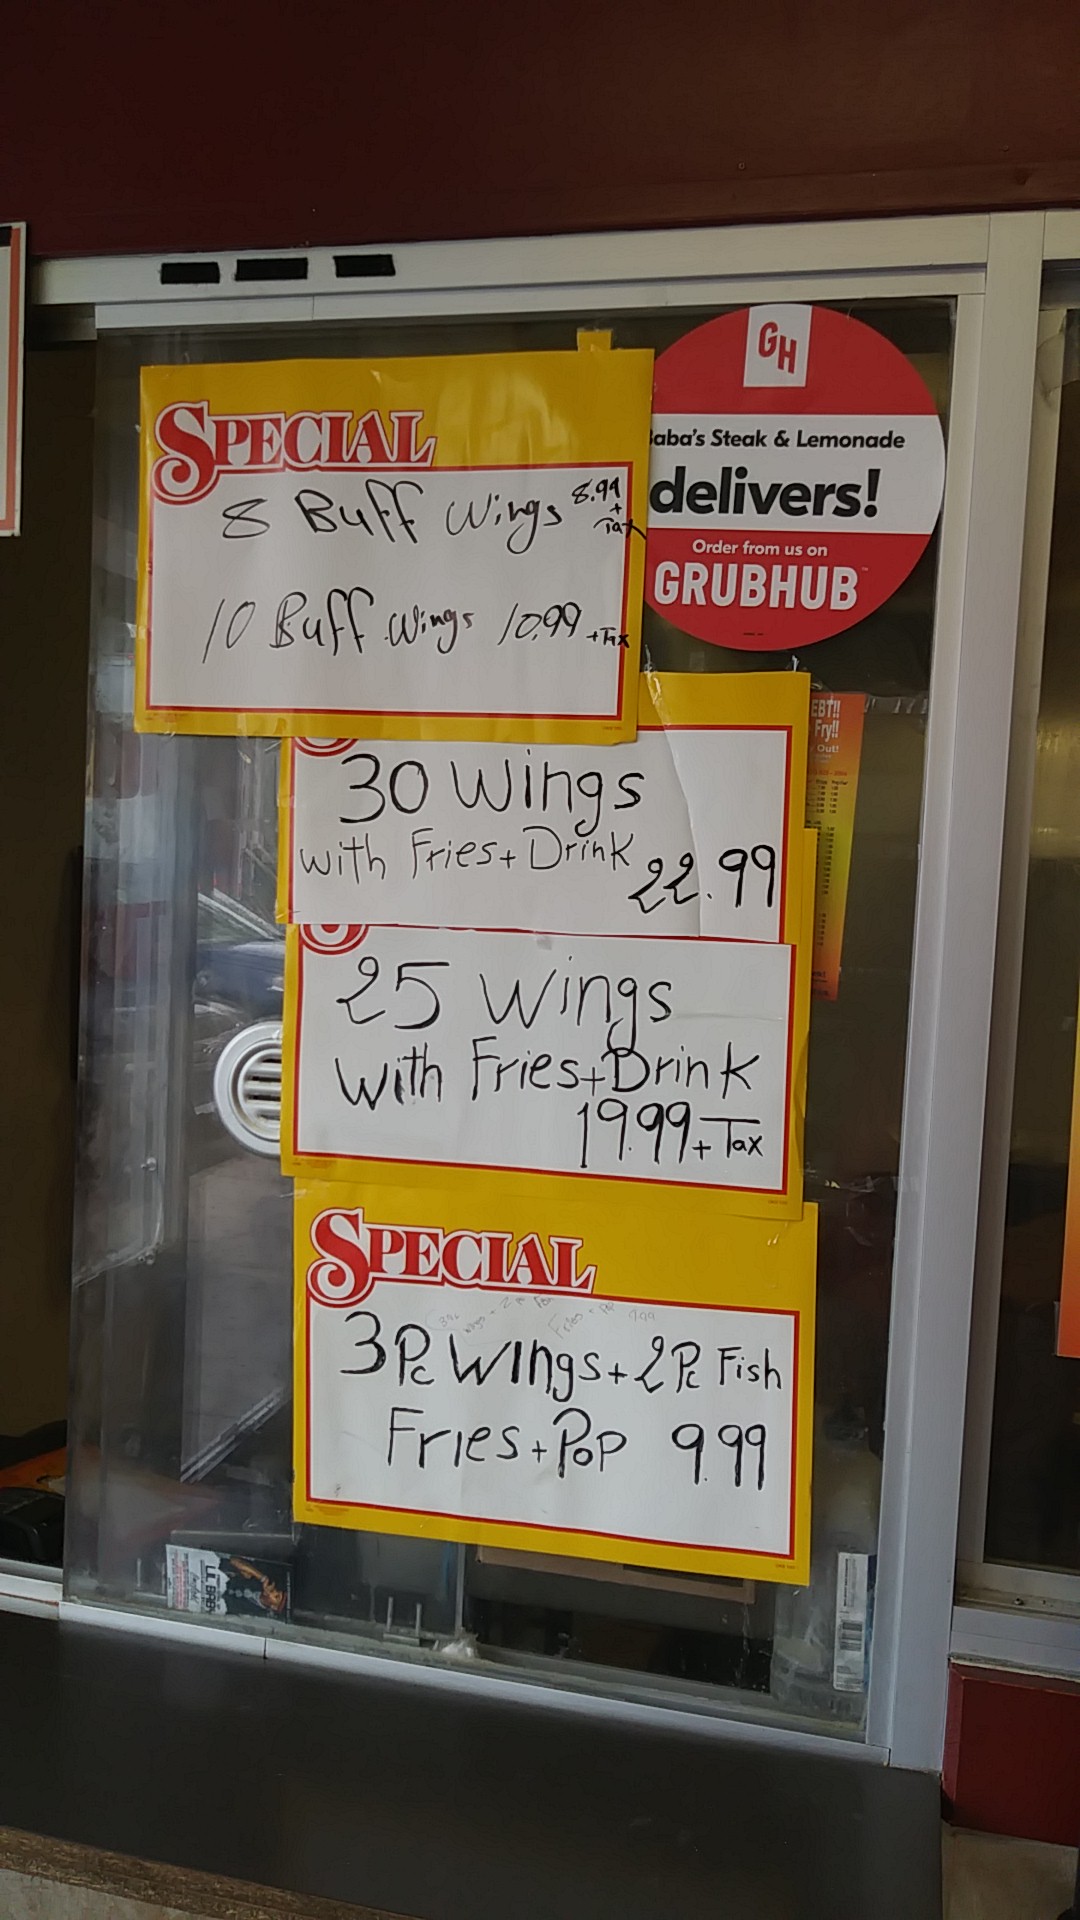 SPECIAL
8 Buff Wings 8.99
+
Tax
10 Buff Wings 10.99 +Tax
GH
aba's Steak & Lemonade
delivers!
Order from us on
GRUBHUB
EBT!!
Fry!!
Out!
30 Wings
with Fries + Drink
22.99
25 Wings
with Fries + Drink
19.99 + Tax
SPECIAL
3Pc Wings + 2Pc Fish
Fries + Pop 9.99
LIL BABY